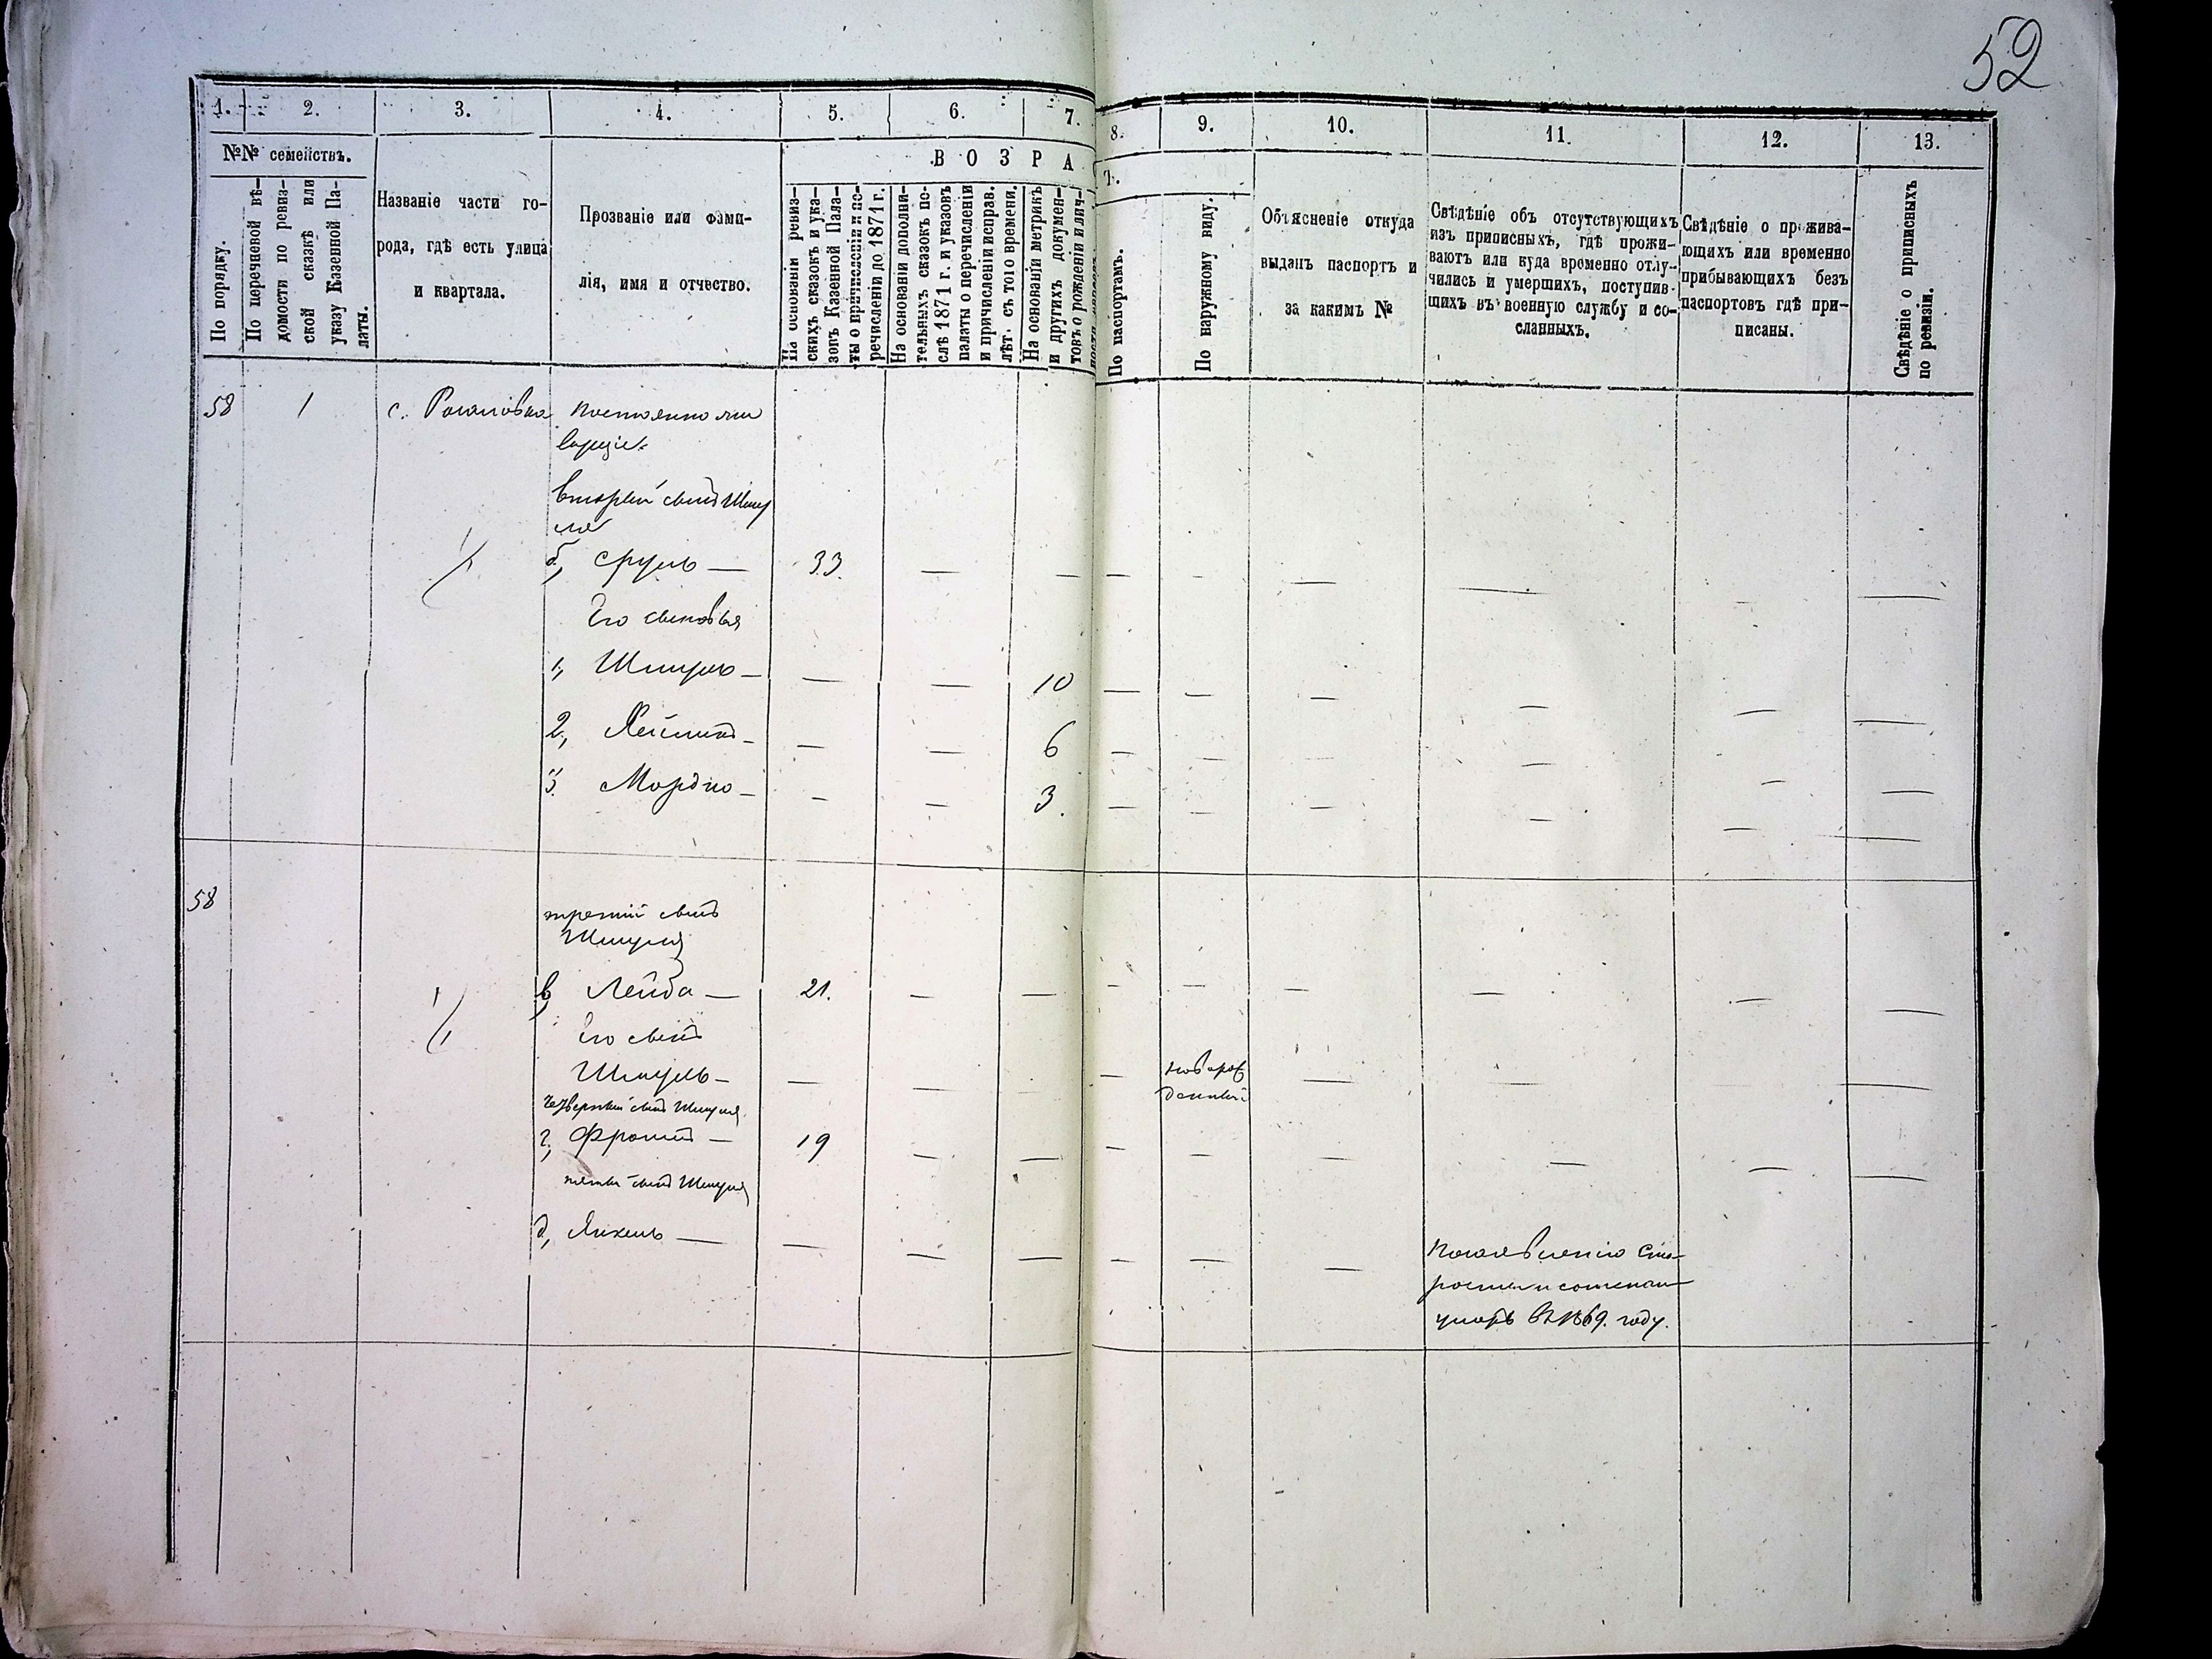 52
1. 2. 3. 4. 5. 6. 7. 8. 9. 10. 11. 12. 13.
№№ семействъ.
В О З Р А
Т.
По порядку.
По перечневой вѣ-
домости по ревиз-
ской сказкѣ или
указу Казенной Па-
латы.
Названіе части го-
рода, гдѣ есть улица
и квартала.
Прозваніе или фами-
лія, имя и отчество.
На основаніи ревиз-
скихъ сказокъ и ука-
зовъ Казенной Пала-
ты о причисленіи и пе-
речисленіи до 1871 г.
На основаніи дополни-
тельныхъ сказокъ по-
слѣ 1871 г. и указовъ
палаты о перечисленіи
и причисленіи исправ.
лѣт. съ того времени.
На основаніи метрикъ
и другихъ докумен-
товъ о рожденіи и лич-
По паспортамъ.
По наружному виду.
Объясненіе откуда
выданъ паспортъ и
за какимъ №
Свѣдѣніе объ отсутствующихъ
изъ приписныхъ, гдѣ прожи-
ваютъ или куда временно отлу-
чились и умершихъ, поступив-
шихъ въ военную службу и со-
сланныхъ.
Свѣдѣніе о прожива-
ющихъ или временно
прибывающихъ безъ
паспортовъ гдѣ при-
писаны.
Свѣдѣніе о приписныхъ
по ревизіи.
58 1 с. Постоянно жи
вущіе
вторый сынъ Шму
ля
б, Сруль — 33. — — — - — — - —
Его сыновья
1, Шмуль — — — 10 — — — — — —
2, — — — 6 — — — — — —
3. Мордко — - — 3. — — — — — —
58
третій сынъ
Шмуля
в, Лейба — 21. — — - — — — — —
Его сынъ
Шмуль — — — — новорож — — — —
денный
четвертый сынъ Шмуля
г, Фроимъ — 19 — — — — — — — —
пятый сынъ Шмуля
д, Янкель — — — — — — —
По заявленію Ста-
росты и
умеръ въ 1869. году.